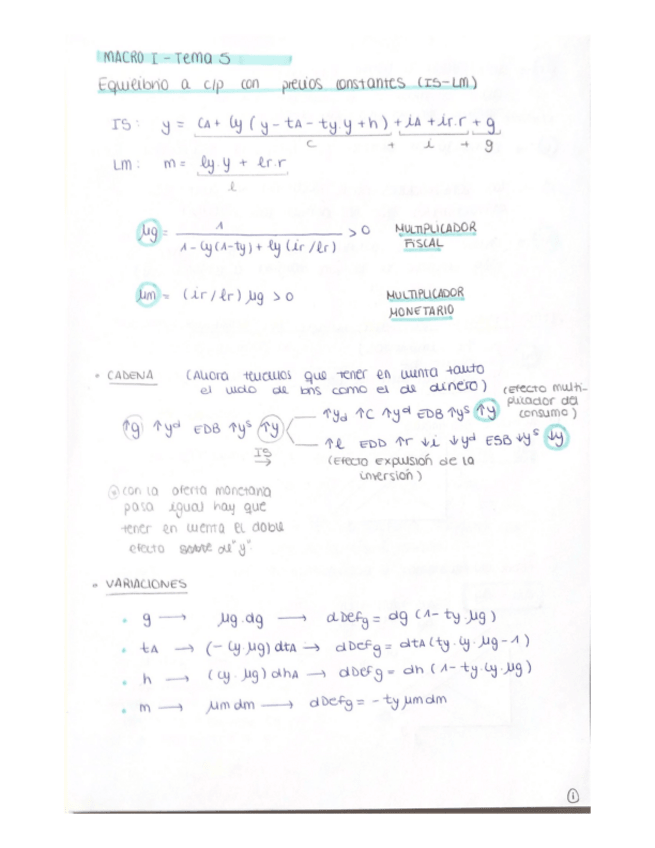 MACRO I - Tema 5
Equilibrio a c/p con precios constantes (IS-LM)
IS: y = CA + Cy (y - tA - ty.y + h) + iA + ir.r + g
C + i + g
LM: m = ly.y + lr.r
l
μg = 1 / 1 - Cy(1-ty) + ly (ir/lr) > 0 MULTIPLICADOR FISCAL
μm = (ir/lr) μg > 0 MULTIPLICADOR MONETARIO
• CADENA (Ahora tenemos que tener en cuenta tanto
el mdo de bns como el de dinero) (efecto multi-
plicador del
consumo)
↑g ↑yd EDB ↑ys ↑y
↑yd ↑C ↑yd EDB ↑ys ↑y
IS →
↑l EDD ↑r ↓i ↓yd ESB ↓ys ↓y
(efecto expulsión de la
inversión)
con la oferta monetaria
pasa igual hay que
tener en cuenta el doble
efecto sobre "y".
• VARIACIONES
• g → μg.dg → dDefg = dg (1 - ty.μg)
• tA → (-Cy.μg) dtA → dDefg = dtA (ty.Cy.μg - 1)
• h → (Cy.μg) dhA → dDefg = dh (1 - ty.Cy.μg)
• m → μm dm → dDefg = - ty μm dm
1